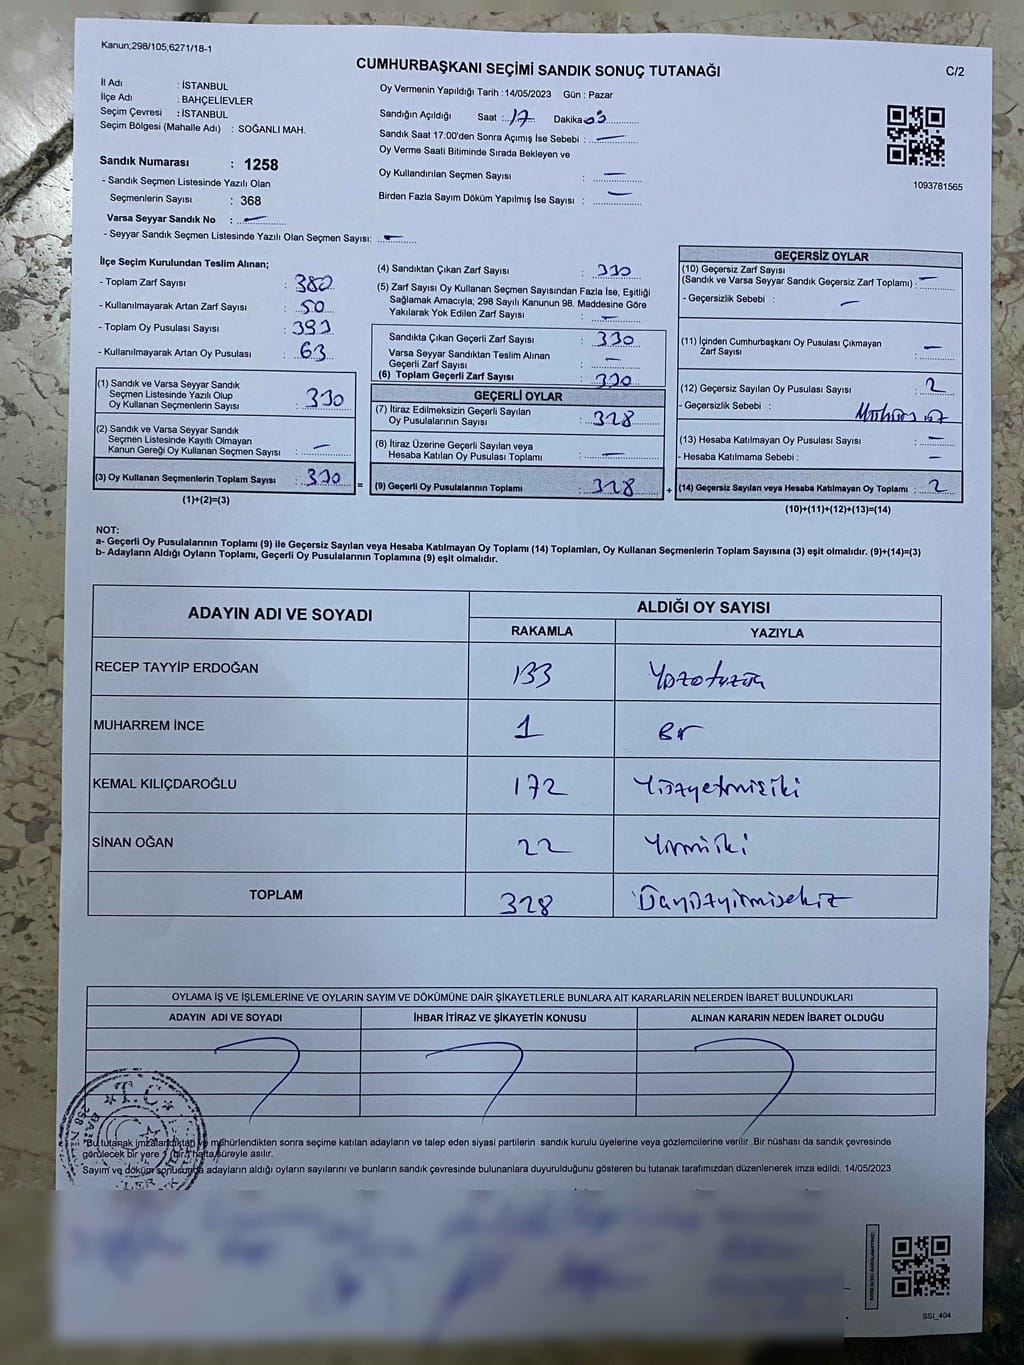 Kanun;298/105;6271/18-1
CUMHURBAŞKANI SEÇİMİ SANDIK SONUÇ TUTANAĞI
C/2
İl Adı : İSTANBUL
İlçe Adı : BAHÇELİEVLER
Seçim Çevresi : İSTANBUL
Seçim Bölgesi (Mahalle Adı) : SOĞANLI MAH.
Sandık Numarası : 1258
- Sandık Seçmen Listesinde Yazılı Olan
Seçmenlerin Sayısı : 368
Varsa Seyyar Sandık No : —
- Seyyar Sandık Seçmen Listesinde Yazılı Olan Seçmen Sayısı: —
Oy Vermenin Yapıldığı Tarih : 14/05/2023 Gün : Pazar
Sandığın Açıldığı Saat : 17 Dakika 03
Sandık Saat 17:00'den Sonra Açımış İse Sebebi : —
Oy Verme Saati Bitiminde Sırada Bekleyen ve
Oy Kullandırılan Seçmen Sayısı : —
Birden Fazla Sayım Döküm Yapılmış İse Sayısı : —
1093781565
İlçe Seçim Kurulundan Teslim Alınan;
- Toplam Zarf Sayısı : 380
- Kullanılmayarak Artan Zarf Sayısı : 50
- Toplam Oy Pusulası Sayısı : 393
- Kullanılmayarak Artan Oy Pusulası : 63
(1) Sandık ve Varsa Seyyar Sandık
Seçmen Listesinde Yazılı Olup
Oy Kullanan Seçmenlerin Sayısı : 330
(2) Sandık ve Varsa Seyyar Sandık
Seçmen Listesinde Kayıtlı Olmayan
Kanun Gereği Oy Kullanan Seçmen Sayısı : —
(3) Oy Kullanan Seçmenlerin Toplam Sayısı : 330
(1)+(2)=(3)
=
(4) Sandıktan Çıkan Zarf Sayısı : 330
(5) Zarf Sayısı Oy Kullanan Seçmen Sayısından Fazla İse, Eşitliği
Sağlamak Amacıyla; 298 Sayılı Kanunun 98. Maddesine Göre
Yakılarak Yok Edilen Zarf Sayısı : —
Sandıkta Çıkan Geçerli Zarf Sayısı : 330
Varsa Seyyar Sandıktan Teslim Alınan
Geçerli Zarf Sayısı : —
(6) Toplam Geçerli Zarf Sayısı : 330
GEÇERLİ OYLAR
(7) İtiraz Edilmeksizin Geçerli Sayılan
Oy Pusulalarının Sayısı : 328
(8) İtiraz Üzerine Geçerli Sayılan veya
Hesaba Katılan Oy Pusulası Toplamı : —
(9) Geçerli Oy Pusulalarının Toplamı : 328
+
GEÇERSİZ OYLAR
(10) Geçersiz Zarf Sayısı
(Sandık ve Varsa Seyyar Sandık Geçersiz Zarf Toplamı) : —
- Geçersizlik Sebebi : —
(11) İçinden Cumhurbaşkanı Oy Pusulası Çıkmayan
Zarf Sayısı : —
(12) Geçersiz Sayılan Oy Pusulası Sayısı : 2
- Geçersizlik Sebebi :
(13) Hesaba Katılmayan Oy Pusulası Sayısı : —
- Hesaba Katılmama Sebebi : —
(14) Geçersiz Sayılan veya Hesaba Katılmayan Oy Toplamı : 2
(10)+(11)+(12)+(13)=(14)
NOT:
a- Geçerli Oy Pusulalarının Toplamı (9) ile Geçersiz Sayılan veya Hesaba Katılmayan Oy Toplamı (14) Toplamları, Oy Kullanan Seçmenlerin Toplam Sayısına (3) eşit olmalıdır. (9)+(14)=(3)
b- Adayların Aldığı Oyların Toplamı, Geçerli Oy Pusulalarının Toplamına (9) eşit olmalıdır.
ADAYIN ADI VE SOYADI
ALDIĞI OY SAYISI
RAKAMLA YAZIYLA
RECEP TAYYİP ERDOĞAN 133 Yüzotuzüç
MUHARREM İNCE 1 Bir
KEMAL KILIÇDAROĞLU 172 Yüzyetmişiki
SİNAN OĞAN 22 Yirmiiki
TOPLAM 328 Üçyüzyirmisekiz
OYLAMA İŞ VE İŞLEMLERİNE VE OYLARIN SAYIM VE DÖKÜMÜNE DAİR ŞİKAYETLERLE BUNLARA AİT KARARLARIN NELERDEN İBARET BULUNDUKLARI
ADAYIN ADI VE SOYADI İHBAR İTİRAZ VE ŞİKAYETİN KONUSU ALINAN KARARIN NEDEN İBARET OLDUĞU
T.C
Bu tutanak imzalandıktan ve mühürlendikten sonra seçime katılan adayların ve talep eden siyasi partilerin sandık kurulu üyelerine veya gözlemcilerine verilir .Bir nüshası da sandık çevresinde
görülecek bir yere 1 (bir) hafta süreyle asılır.
Sayım ve döküm sonucunda adayların aldığı oyların sayılarını ve bunların sandık çevresinde bulunanlara duyurulduğunu gösteren bu tutanak tarafımızdan düzenlenerek imza edildi. 14/05/2023
SSI_404